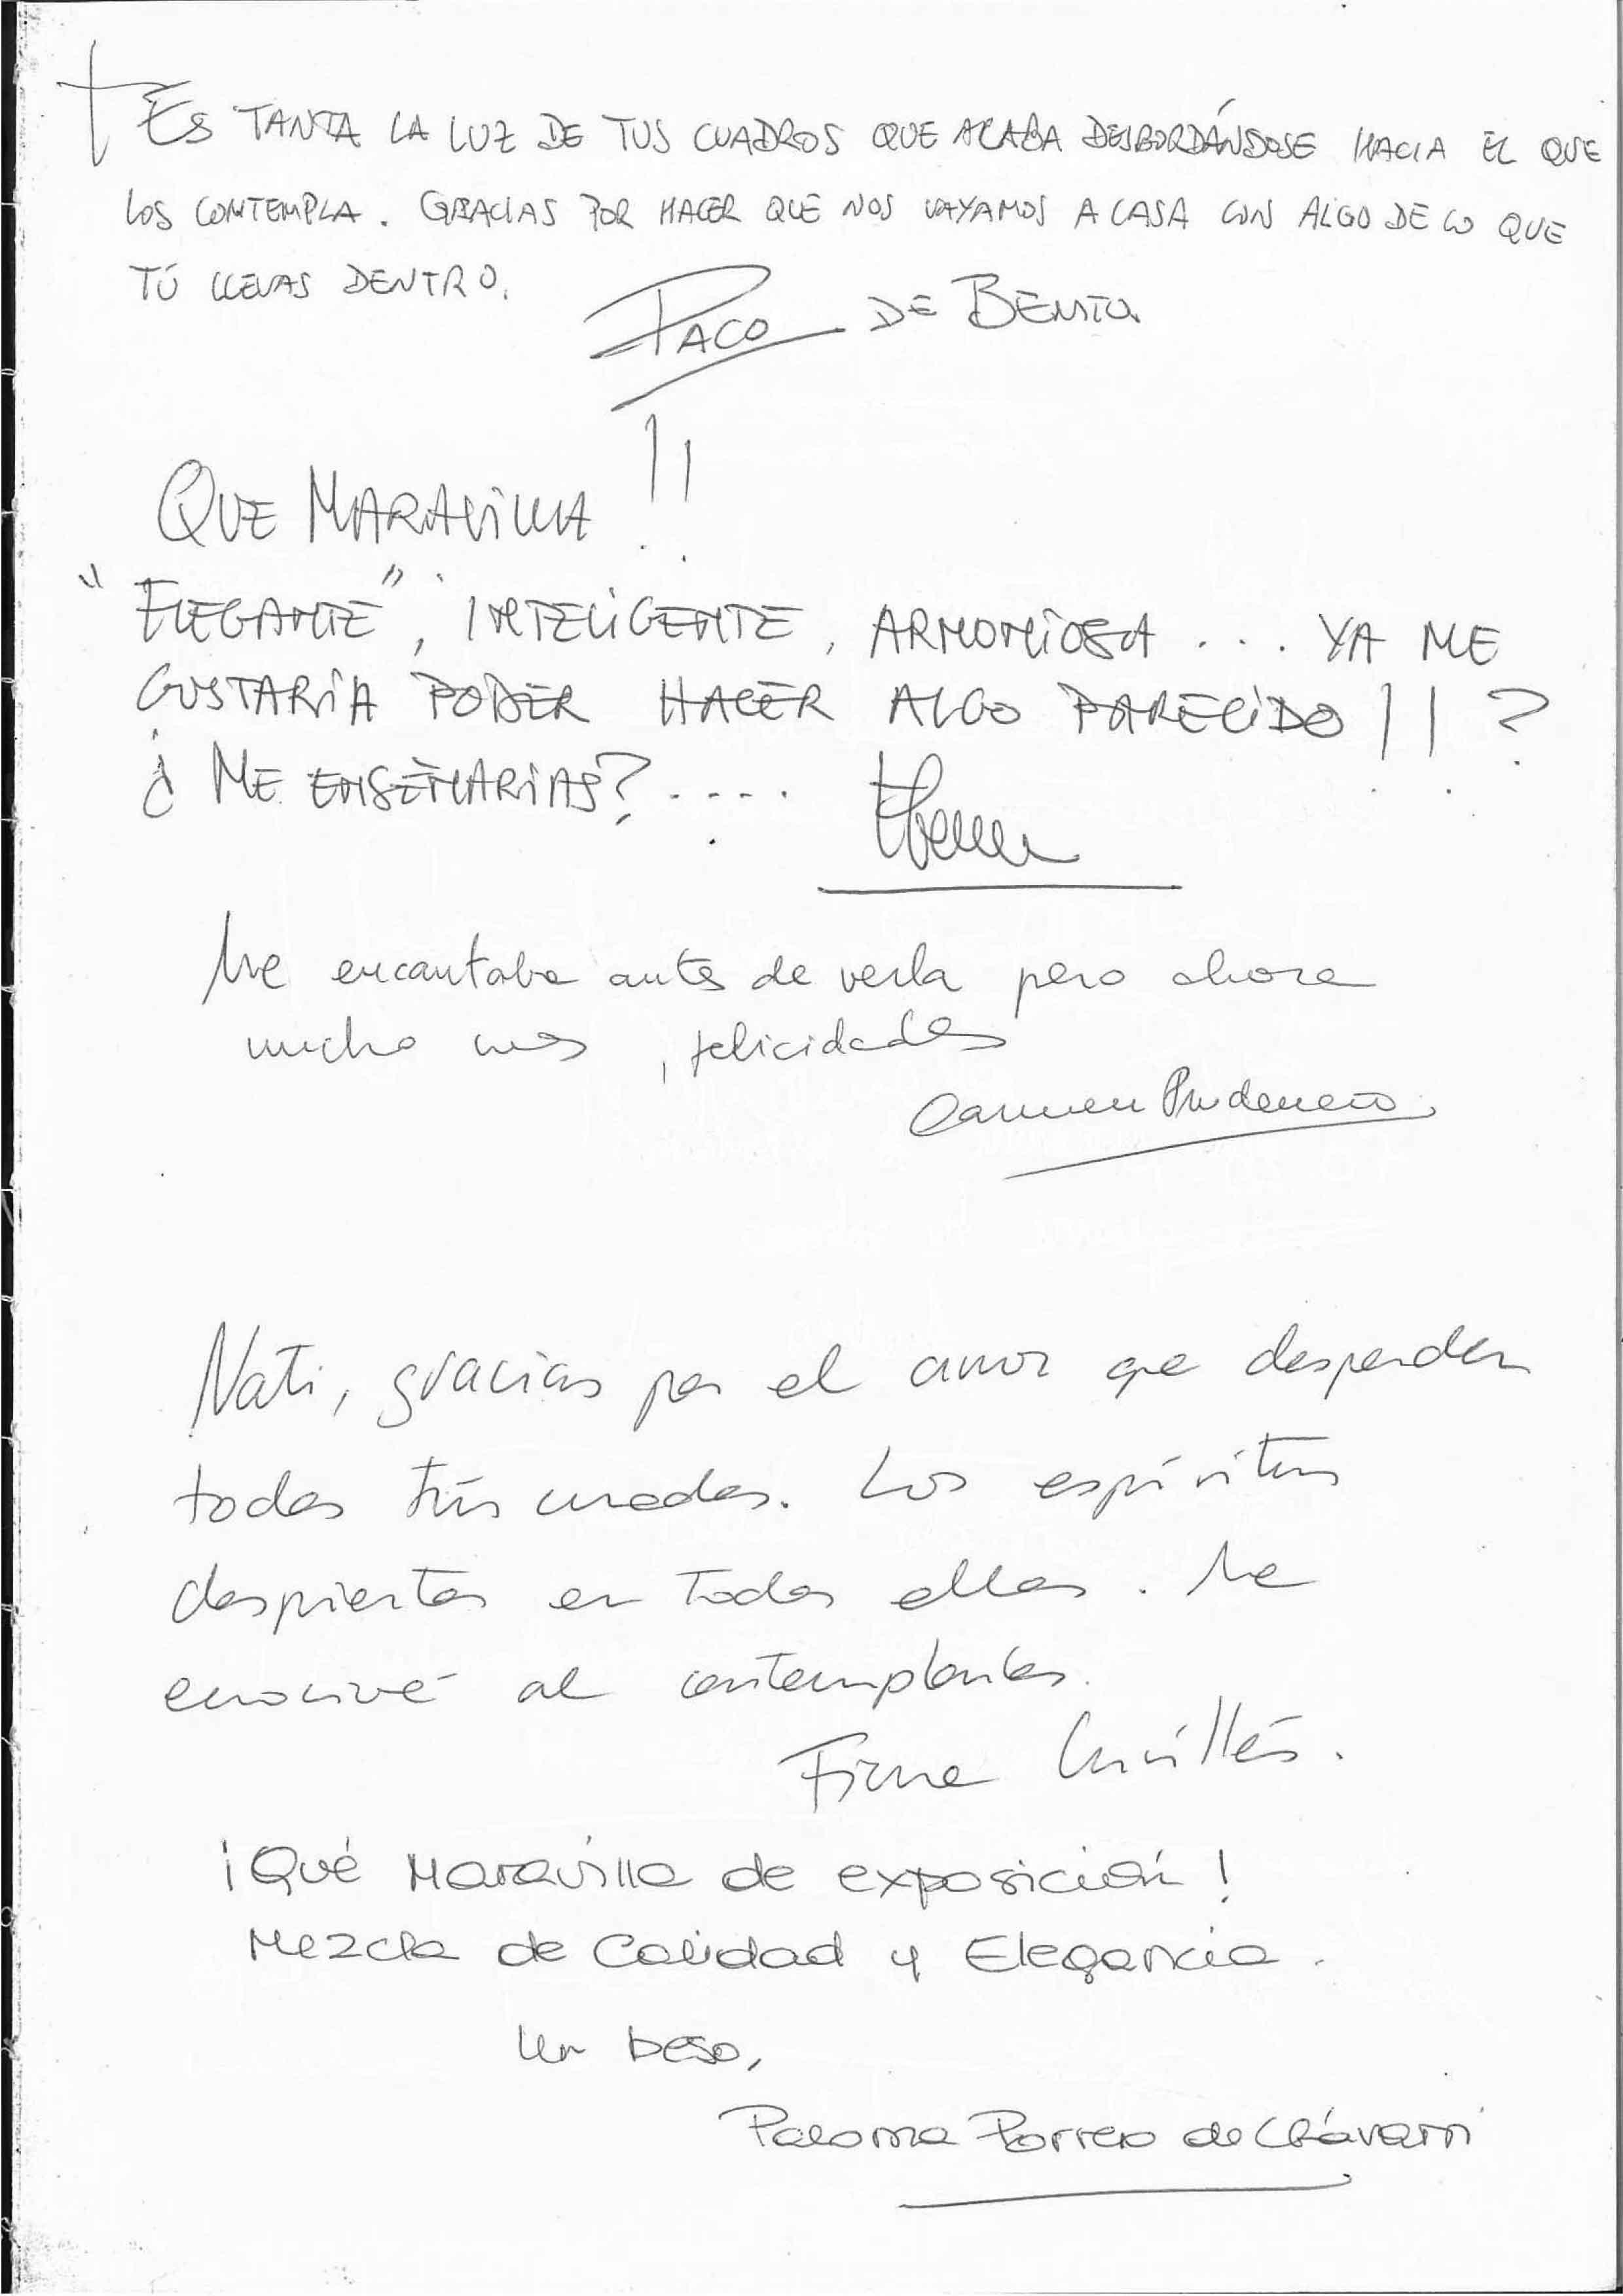 ES TANTA LA LUZ DE TUS CUADROS QUE ACABA DESBORDÁNDOSE HACIA EL QUE
LOS CONTEMPLA. GRACIAS POR HACER QUE NOS VAYAMOS A CASA CON ALGO DE LO QUE
TÚ LLEVAS DENTRO.
PACO DE BENITO
QUE MARAVILLA !!
"ELEGANTE", INTELIGENTE, ARMONIOSA ... YA ME
GUSTARÍA PODER HACER ALGO PARECIDO !! ?
¿ ME ENSEÑARÍAS? ....
Me encantaba antes de verla pero ahora
mucho mas, felicidades
Carmen Prudencio
Nati, gracias por el amor que desprenden
todas tus miradas. Los espíritus
despiertos en todas ellas. Me
emocioné al contemplarlas.
¡Qué Maravilla de exposición!
Mezcla de Calidad y Elegancia.
Un beso,
Paloma Porrero de Chávarri